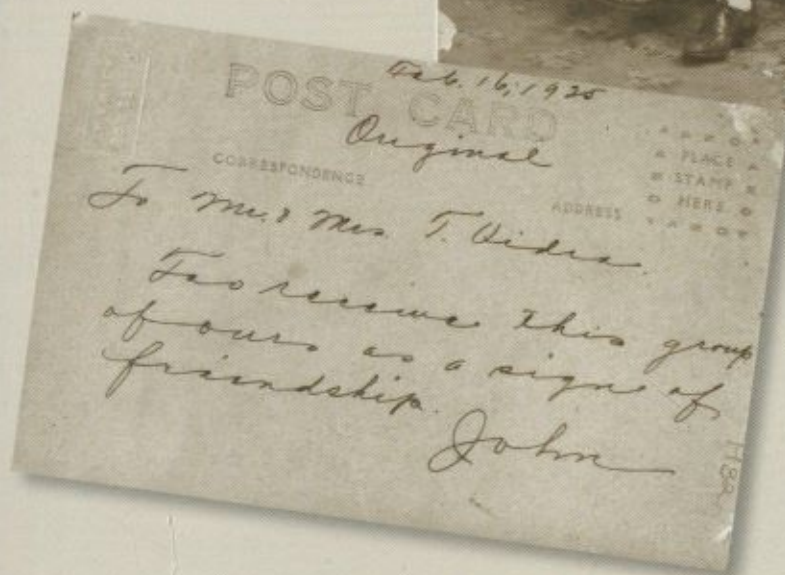 Feb. 16, 1925
POST CARD
Original
CORRESPONDENCE
ADDRESS
PLACE
STAMP
HERE
To Mr. & Mrs. T. Vidra.
receive this group
of ours as a sign of
friendship.
John